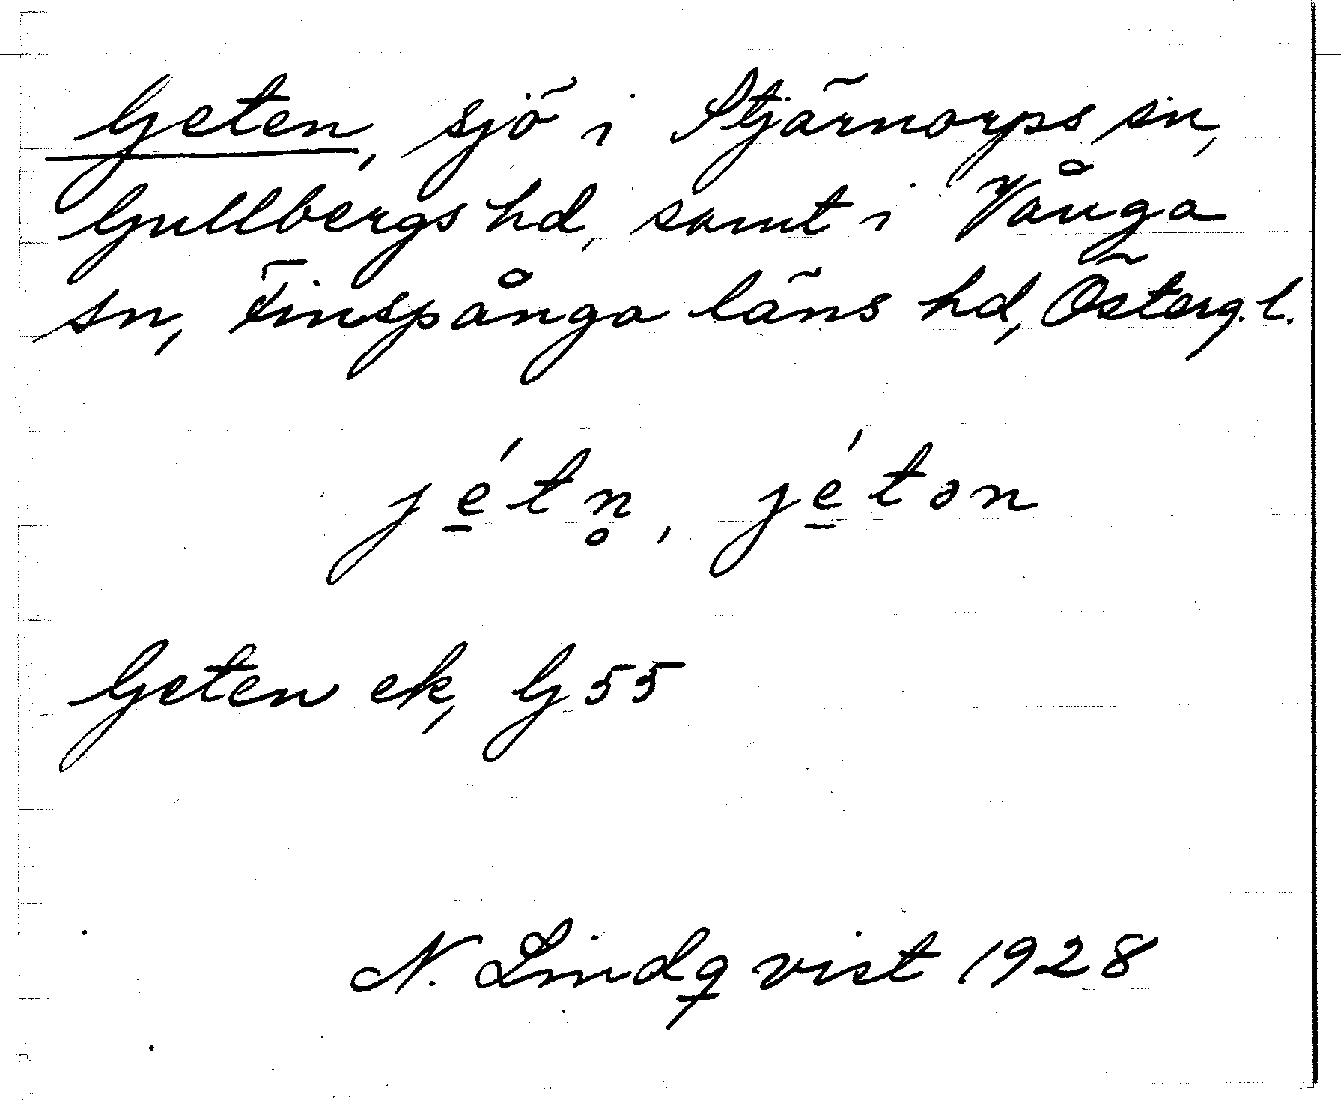 Geten, sjö i Stjärnorps sn,
Gullbergs hd, samt i Vånga
sn, Finspånga läns hd, Österg. l.
jé̲tn̥, jé̲tən
Geten ek, G 55
N. Lindqvist 1928